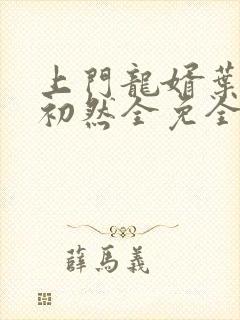 上門龍婿葉
初然全免全
薛馬義